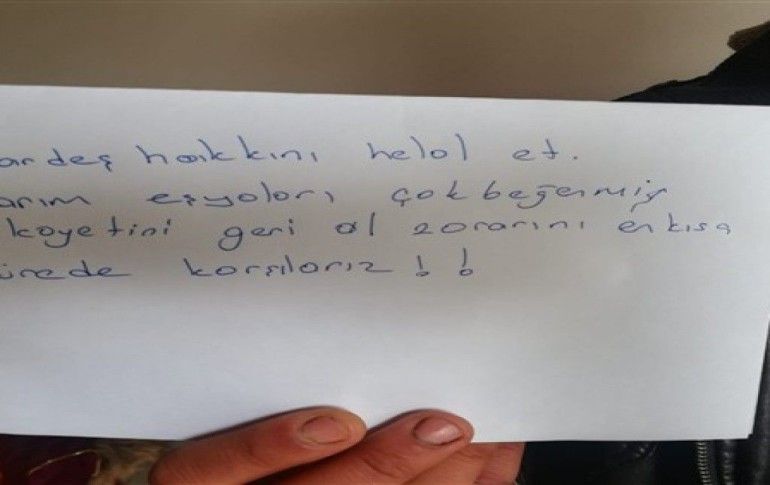 ardeş hakkını helal et.
arım eşyaları çok beğenmiş
kayetini geri al zararını en kısa
ürede karşılarız!!